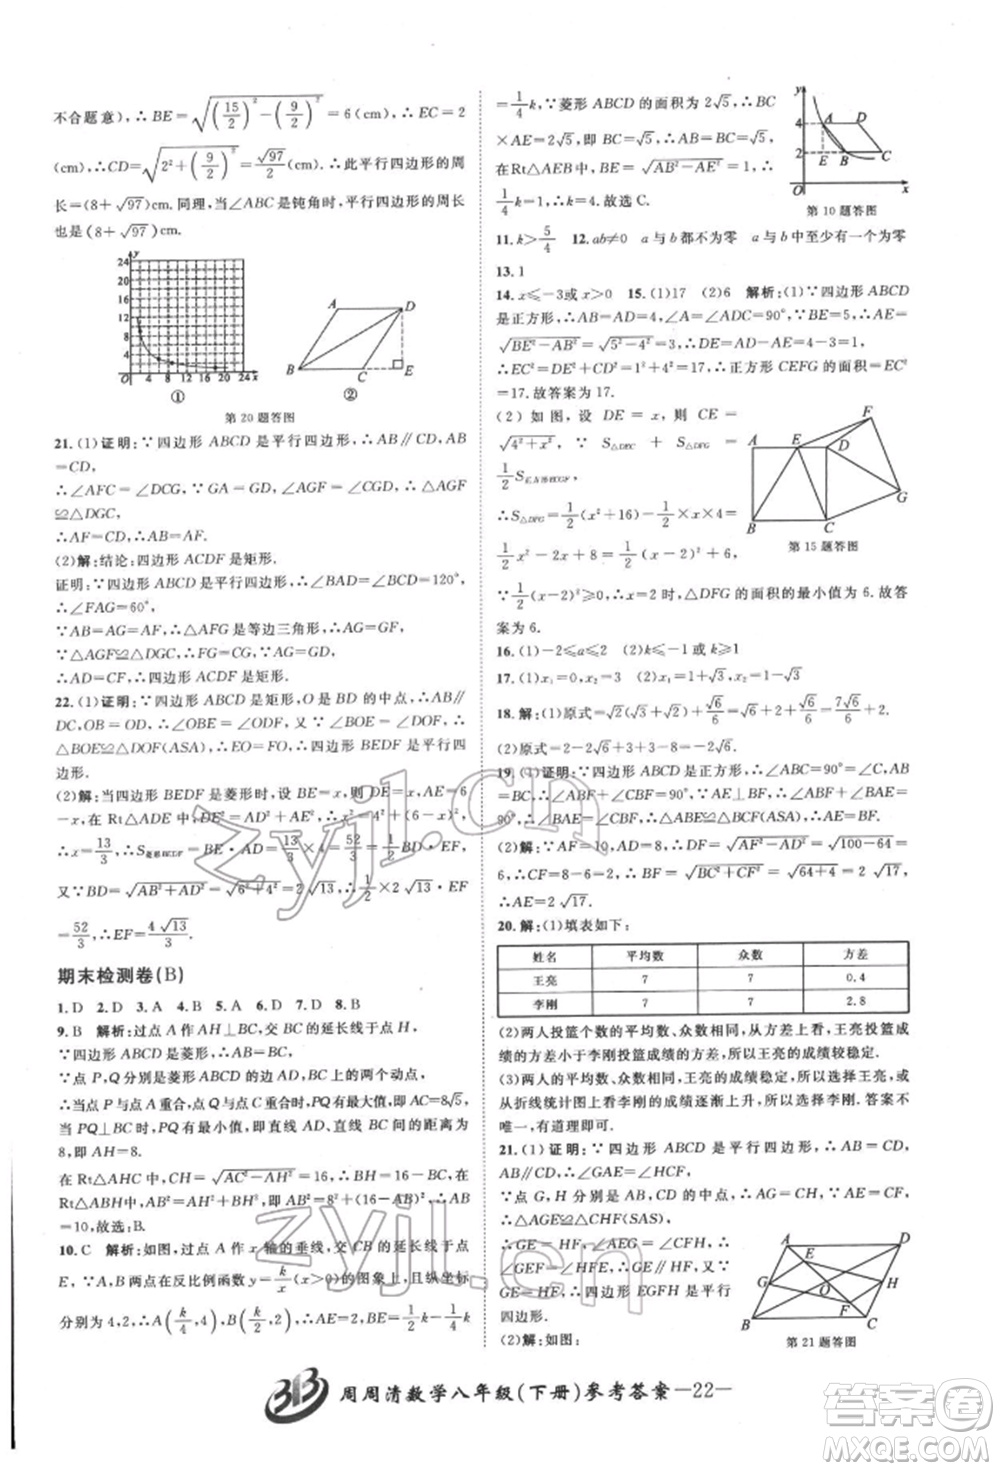 不合题意),∴BE=√((15/2)²-(9/2)²)=6(cm),∴EC=2
(cm),∴CD=√(2²+(9/2)²)=√97/2(cm),∴此平行四边形的周
长=(8+√97)cm.同理,当∠ABC是钝角时,平行四边形的周长
也是(8+√97)cm.
y
24
20
16
12
8
4
O 4 8 12 16 20 24 x
①
A D
B C E
②
第20题答图
21.(1)证明:∵四边形ABCD是平行四边形,∴AB∥CD,AB
=CD,
∴∠AFC=∠DCG,∵∠AGF=∠CGF,∴△AGF
≌△DGC,
∴AF=CD,∴AB=AF.
(2)解:结论:四边形ACDF是矩形.
证明:∵四边形ABCD是平行四边形,∴∠BAD=∠BCD=120°,
∴∠FAG=60°,
∵AB=AG=AF,∴△AFG是等边三角形,
∵△AGF≌△DGC,
∴AD=CF,∴四边形ACDF是矩形.
22.(1)证明:∵四边形ABCD是矩形,O是BD的中点,∴AB∥
DC,OB=OD,∴∠OBE=∠ODF,∴
△BOE≌△DOF(ASA),∴EO=FO,∴四边形BEDF是平行四
边形.
(2)解:当四边形BEDF是菱形时,设BE=x,则DE=x,AE=6
-x,在Rt△ADE中,DE²=AD²+AE²,∴x²=4²+(6-x)²,
∴x=13/3,∴S菱形BEDF=BE·AD=13/3×4=52/3=1/2BD·EF,
又∵BD=√(AB²+AD²)=√(6²+4²)=2√13,∴1/2×2√13·EF
=52/3,∴EF=4√13/3.
期末检测卷(B)
1.D 2.D 3.D 4.A 5.A 6.D 7.D 8.B
9.B 解析:过点A作AH⊥BC,交BC的延长线于点H,
∵四边形ABCD是菱形,∴AD∥BC,
∵点P,Q分别是菱形ABCD的边AD,BC上的两个动点,
∴当点P与点A重合,点Q与点B重合,PQ有最大值,即AB=8√5,当
当PQ⊥BC时,PQ有最小值,即直线AD,直线BC的距离为
8,即AH=8.
在Rt△AHC中,CH=√(AC²-AH²)=16,∴BH=16-BC=16-AB,在
Rt△ABH中,AB²=AH²+BH²=64+(16-AB)²,∴AB
=10,故选:B.
10.C 解析:过点A作x轴的垂线,交CB的延长线于点
E,∵A,B两点在反比例函数y=k/x(x>0)的图象上,且纵坐标
分别为4,2,∴A(k/4,4),B(k/2,2),∴AE=2,BE=1/2k-1/4k
=1/4k,∵菱形ABCD的面积为2√5,∴BC
×AE=2√5,即BC=√5,∴AB=BC=√5,在
Rt△AEB中,BE=√(AB²-AE²)=1,∴
1/4k=1,∴k=4.故选C.
y
4 A D
2 E B C
O x
第10题答图
11.k>5/4 12.ab≠0 a与b都不为零 a与b中至少有一个为零
13.1
14.x≤-3或x>0 15.(1)17 (2)6 解析:(1)∵四边形ABCD
是正方形,∴AB=AD=4,∠A=∠ADC=90°,∴AE=
√(BE²-AB²)=√(5²-4²)=3,∴DE=AD-AE=4-3=1,
∴EC²=DE²+CD²=1²+4²=17,∴正方形CEFG的面积=EC²
=17.故答案为17.
(2)如图,设DE=x,则CE=
√(4²+x²),∵S△DEC+S△DFG=
1/2S正方形ECGF,
∴S△DFG=1/2(x²+16)-1/2×x×4=
1/2x²-2x+8=1/2(x-2)²+6,
∵1/2(x-2)²≥0,∴x=2时,△DFG的面积的最小值为6.故答
案为6.
A E D F
B C G
第15题答图
16.(1)-2≤a≤2 (2)k≤-1或k≥1
17.(1)x₁=0,x₂=1 (2)x₁=1+√3,x₂=1-√3
18.解:(1)原式=√2(√3+√2)+√6/6=√6+2+√6/6=7√6/6+2.
(2)原式=2-2√6+3-(3-2)=4-2√6.
19.(1)证明:∵四边形ABCD是正方形,∴∠ABC=90°,AB=
BC,∴∠ABE+∠CBF=90°,∵AE⊥BF,∴∠ABE+∠BAE=
90°,∴∠BAE=∠CBF,∴△ABE≌△BCF(ASA),∴AE=BF.
(2)解:∵AF=10,AD=8,∴DF=√(AF²-AD²)=√(100-64)=
6,∴CF=8-6=2,∴BF=√(BC²+CF²)=√(64+4)=2√17,
∴AE=2√17.
20.解:(1)填表如下:
姓名 平均数 众数 方差
王亮 7 7 0.4
李刚 7 7 2.8
(2)两人投篮个数的平均数、众数相同,从方差上看,王亮投篮成
绩的方差小于李刚投篮成绩的方差,所以王亮的成绩较稳定.
(3)两人的平均数、众数相同,王亮的成绩较稳定,所以选王亮.或
按折线统计图上看李刚的成绩逐渐上升,所以选李刚.答案不
唯一,有道理即可.
21.(1)证明:∵四边形ABCD是平行四边形,∴AB∥CD,AB
=CD,∴∠GAE=∠HCF,
∵点G,H分别是AB,CD的中点,∴AG=CH,∵AE
=CF,∴△AGE≌△CHF(SAS),
∴GE=HF,∠AEG=∠CFH,∴
∠GEF=∠HFE,∴GE∥HF,又
∵GE=HF,∴四边形EGFH是平行
四边形.
(2)解:如图:
A D
E
G O H
F
B C
第21题答图
周周清数学八年级(下册)参考答案—22—
zyjl.cn
zyjl.cn
答案圈
MXQE.COM